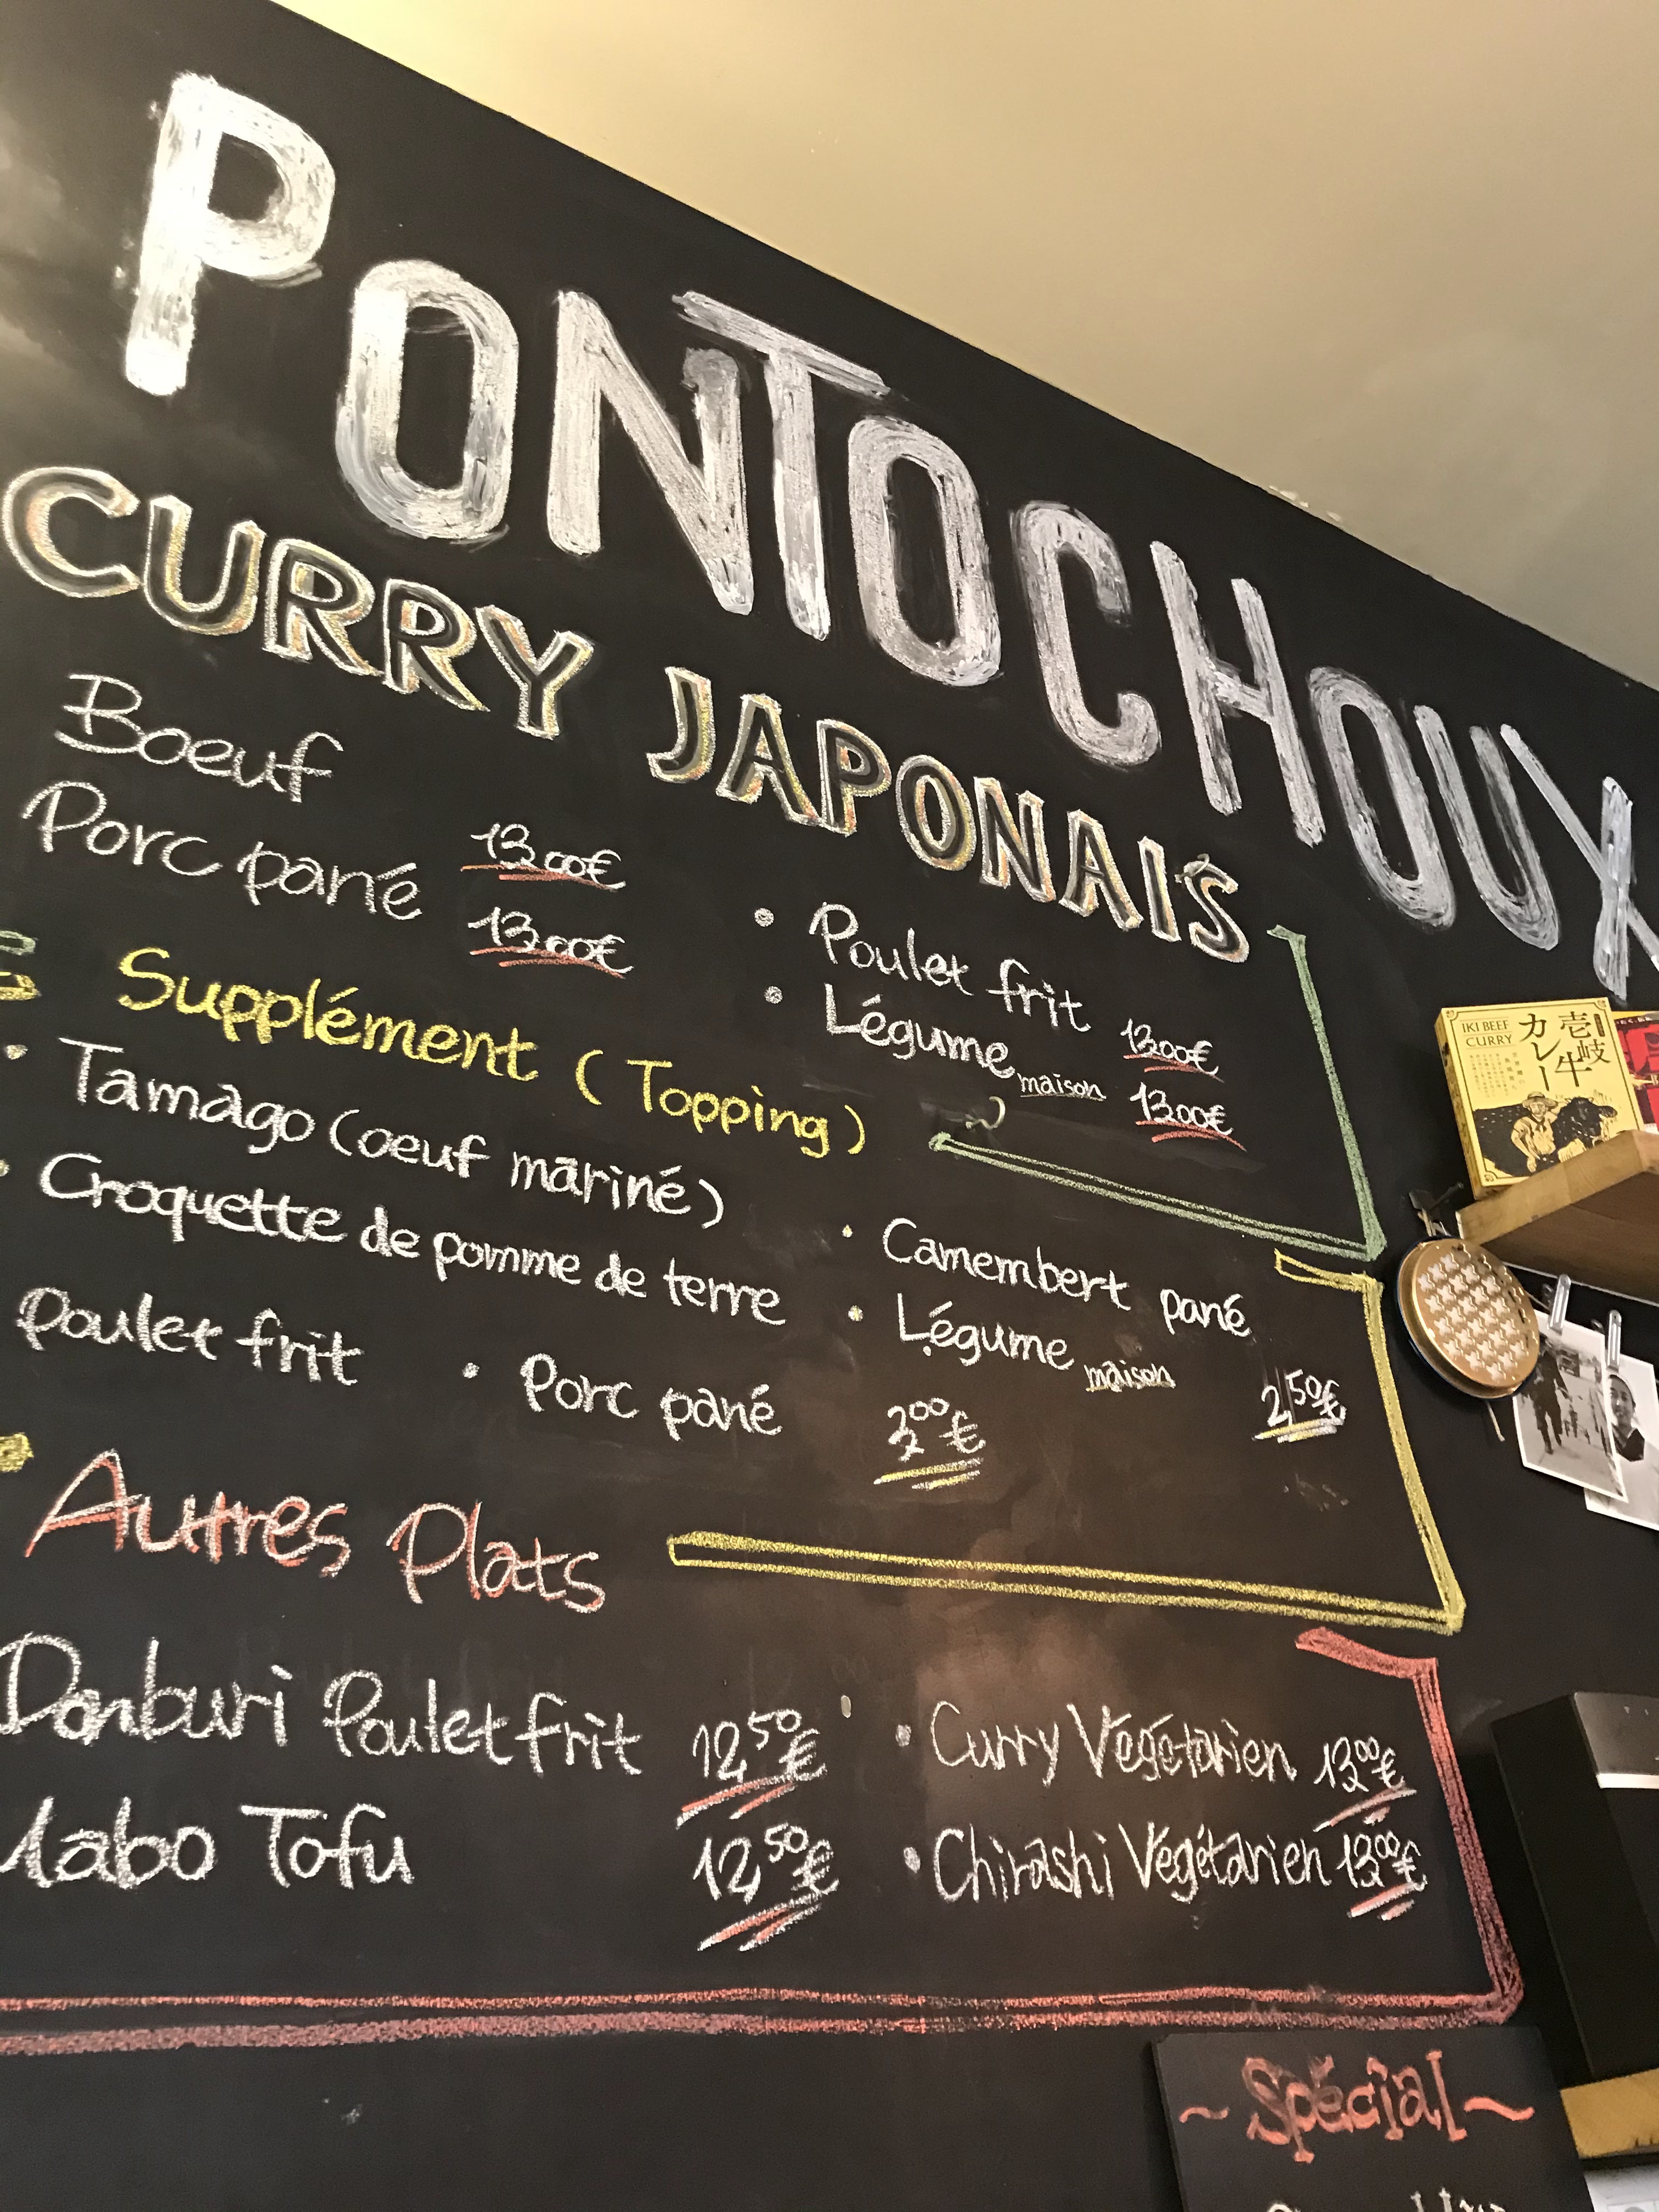 PONTOCHOUX
CURRY JAPONAIS
Boeuf 13.00€
Porc pané 13.00€
• Poulet frit 13.00€
• Légume maison 13.00€
Supplément (Topping)
• Tamago (oeuf mariné)
• Croquette de pomme de terre
• Camembert pané
• Légume maison 2,50€
Poulet frit • Porc pané 3,00€
Autres Plats
Donburi Poulet frit 12,50€
• Curry Végétarien 13,00€
Mabo Tofu 12,50€
• Chirashi Végétarien 13,00€
~Spécial~
IKI BEEF
CURRY
壱岐牛
カレー